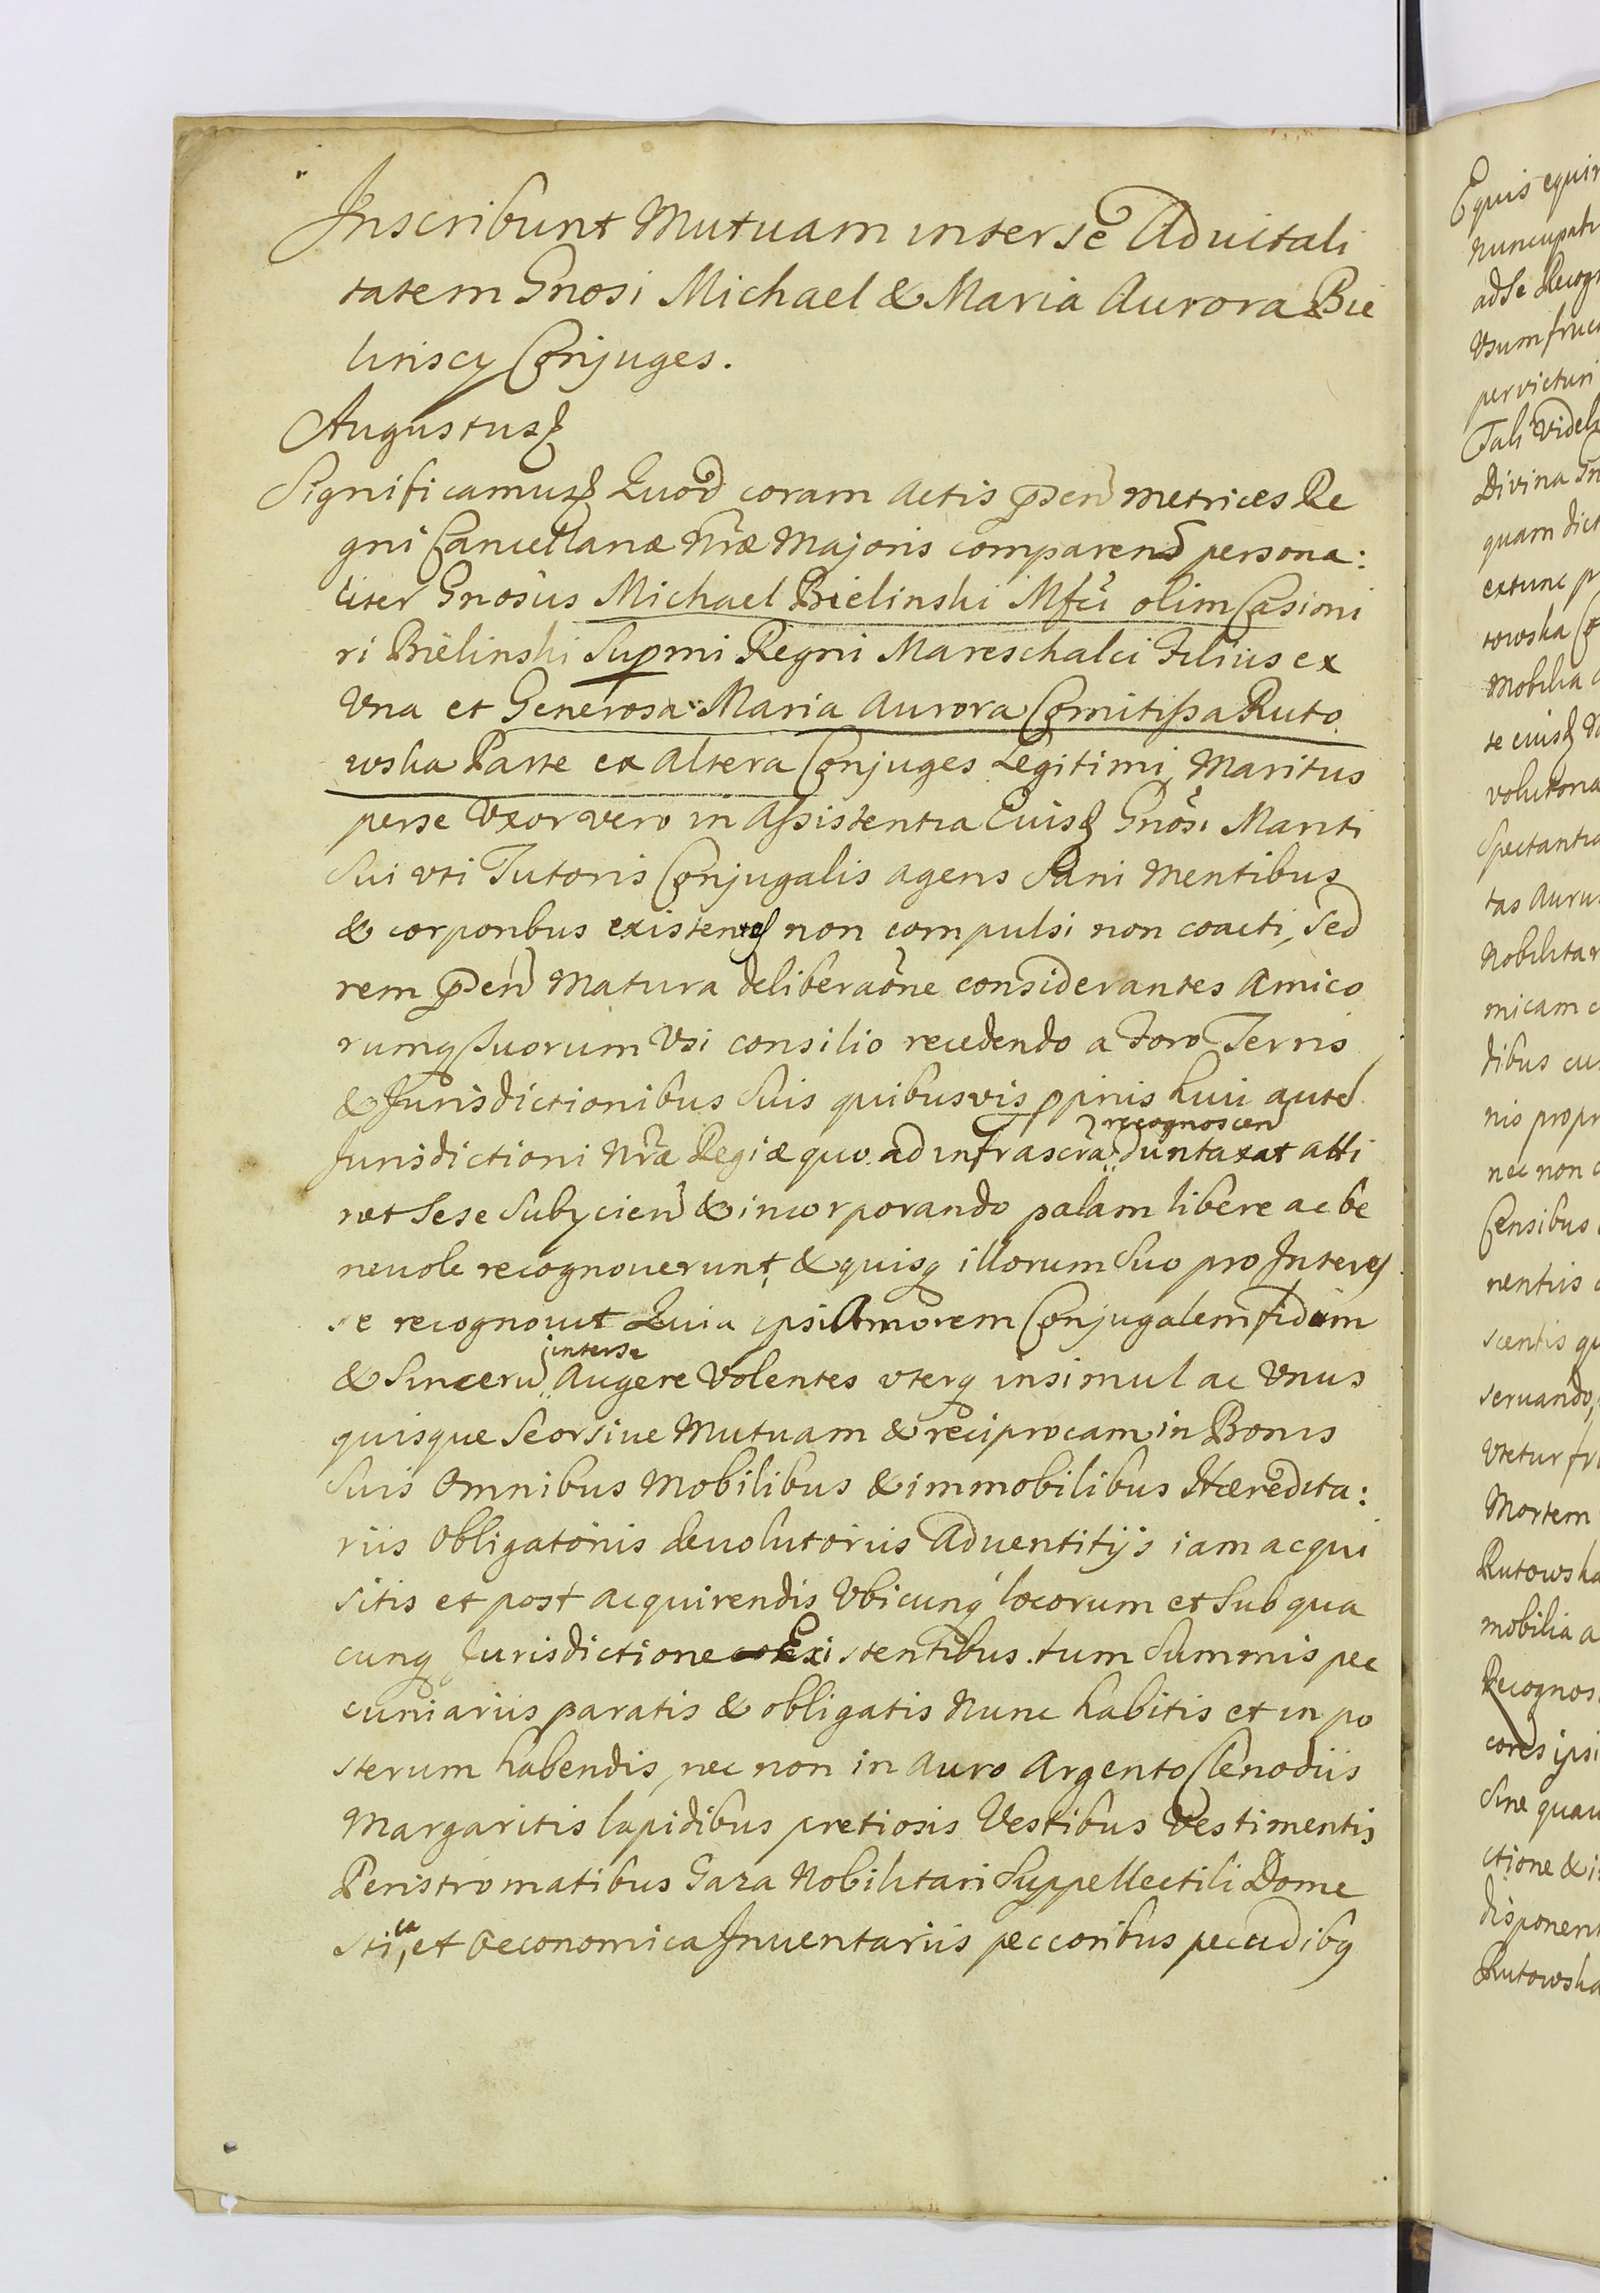 Inscribunt Mutuam inter se Advitali
tatem Gnosi Michael & Maria Aurora Bie
linscy Conjuges.
Augustus
Significamus Quod coram Actis pñ Metrices Re
gni Cancellariæ Nræ Majoris comparen persona:
liter Gnosus Michael Bielinski Mfci olim Casimi
ri Bielinski Supmi Regni Mareschalci Filius ex
Vna et Generosa Maria Aurora Comitissa Ruto
wska Parte ex Altera Conjuges Legitimi, Maritus
per se Vxor vero in Assistentia Eiusd Gnosi Mariti
Sui vti Tutoris Conjugalis agens Sani Mentibus
& corporibus existentes non compulsi non coacti, Sed
rem pñ Matura deliberaone considerantes Amico
rumq Suorum Vsi consilio recedendo a Foro Terris
& Jurisdictionibus Suis quibusvis pprijs huic aute
recognoscen
Jurisdictioni Nræ Regiæ quo ad infrascra duntaxat atti
net Sese Subycien & incorporando palam libere ac be
nevole recognoverunt, & quisq illorum Suo pro Interes
se recognovit Quia ipsi Amorem Conjugalem fidum
inter se
& Sinceru Augere Volentes vterq insimul ac Vnus
quisque Seorsive Mutuam & reciprocam in Bonis
Suis Omnibus Mobilibus & immobilibus Hæredita:
riis Obligatoriis devolutoriis Adventitijs iam acqui
sitis et post acquirendis Vbicunq locorum et Sub qua
cunq Jurisdictione Existentibus. tum Summis pec
cuniariis paratis & obligatis Nunc habitis et in po
sterum habendis, nec non in Auro Argento Clenodiis
Margaritis lapidibus pretiosis Vestibus Vestimentis
Peristromatibus Gaza Nobilitari Suppellectili Dome
ca
sti, et Oeconomica Inventariis peccoribus pecudibq
Equis
nuncupati
ad Se Recogn
Vsumfruc
per victuri
Tali Videl
Divina
quam dict
extunc
towska
Mobilia
te eiusd
Spectantia
tas Auru
Nobilitar
micam
dibus
nis propr
nec non
Censibus
nentiis
scentis
servando,
Vtetur
Mortem
Rutowska
mobilia a
Recognos
ipsi
Sine
ctione &
disponent
Rutowska